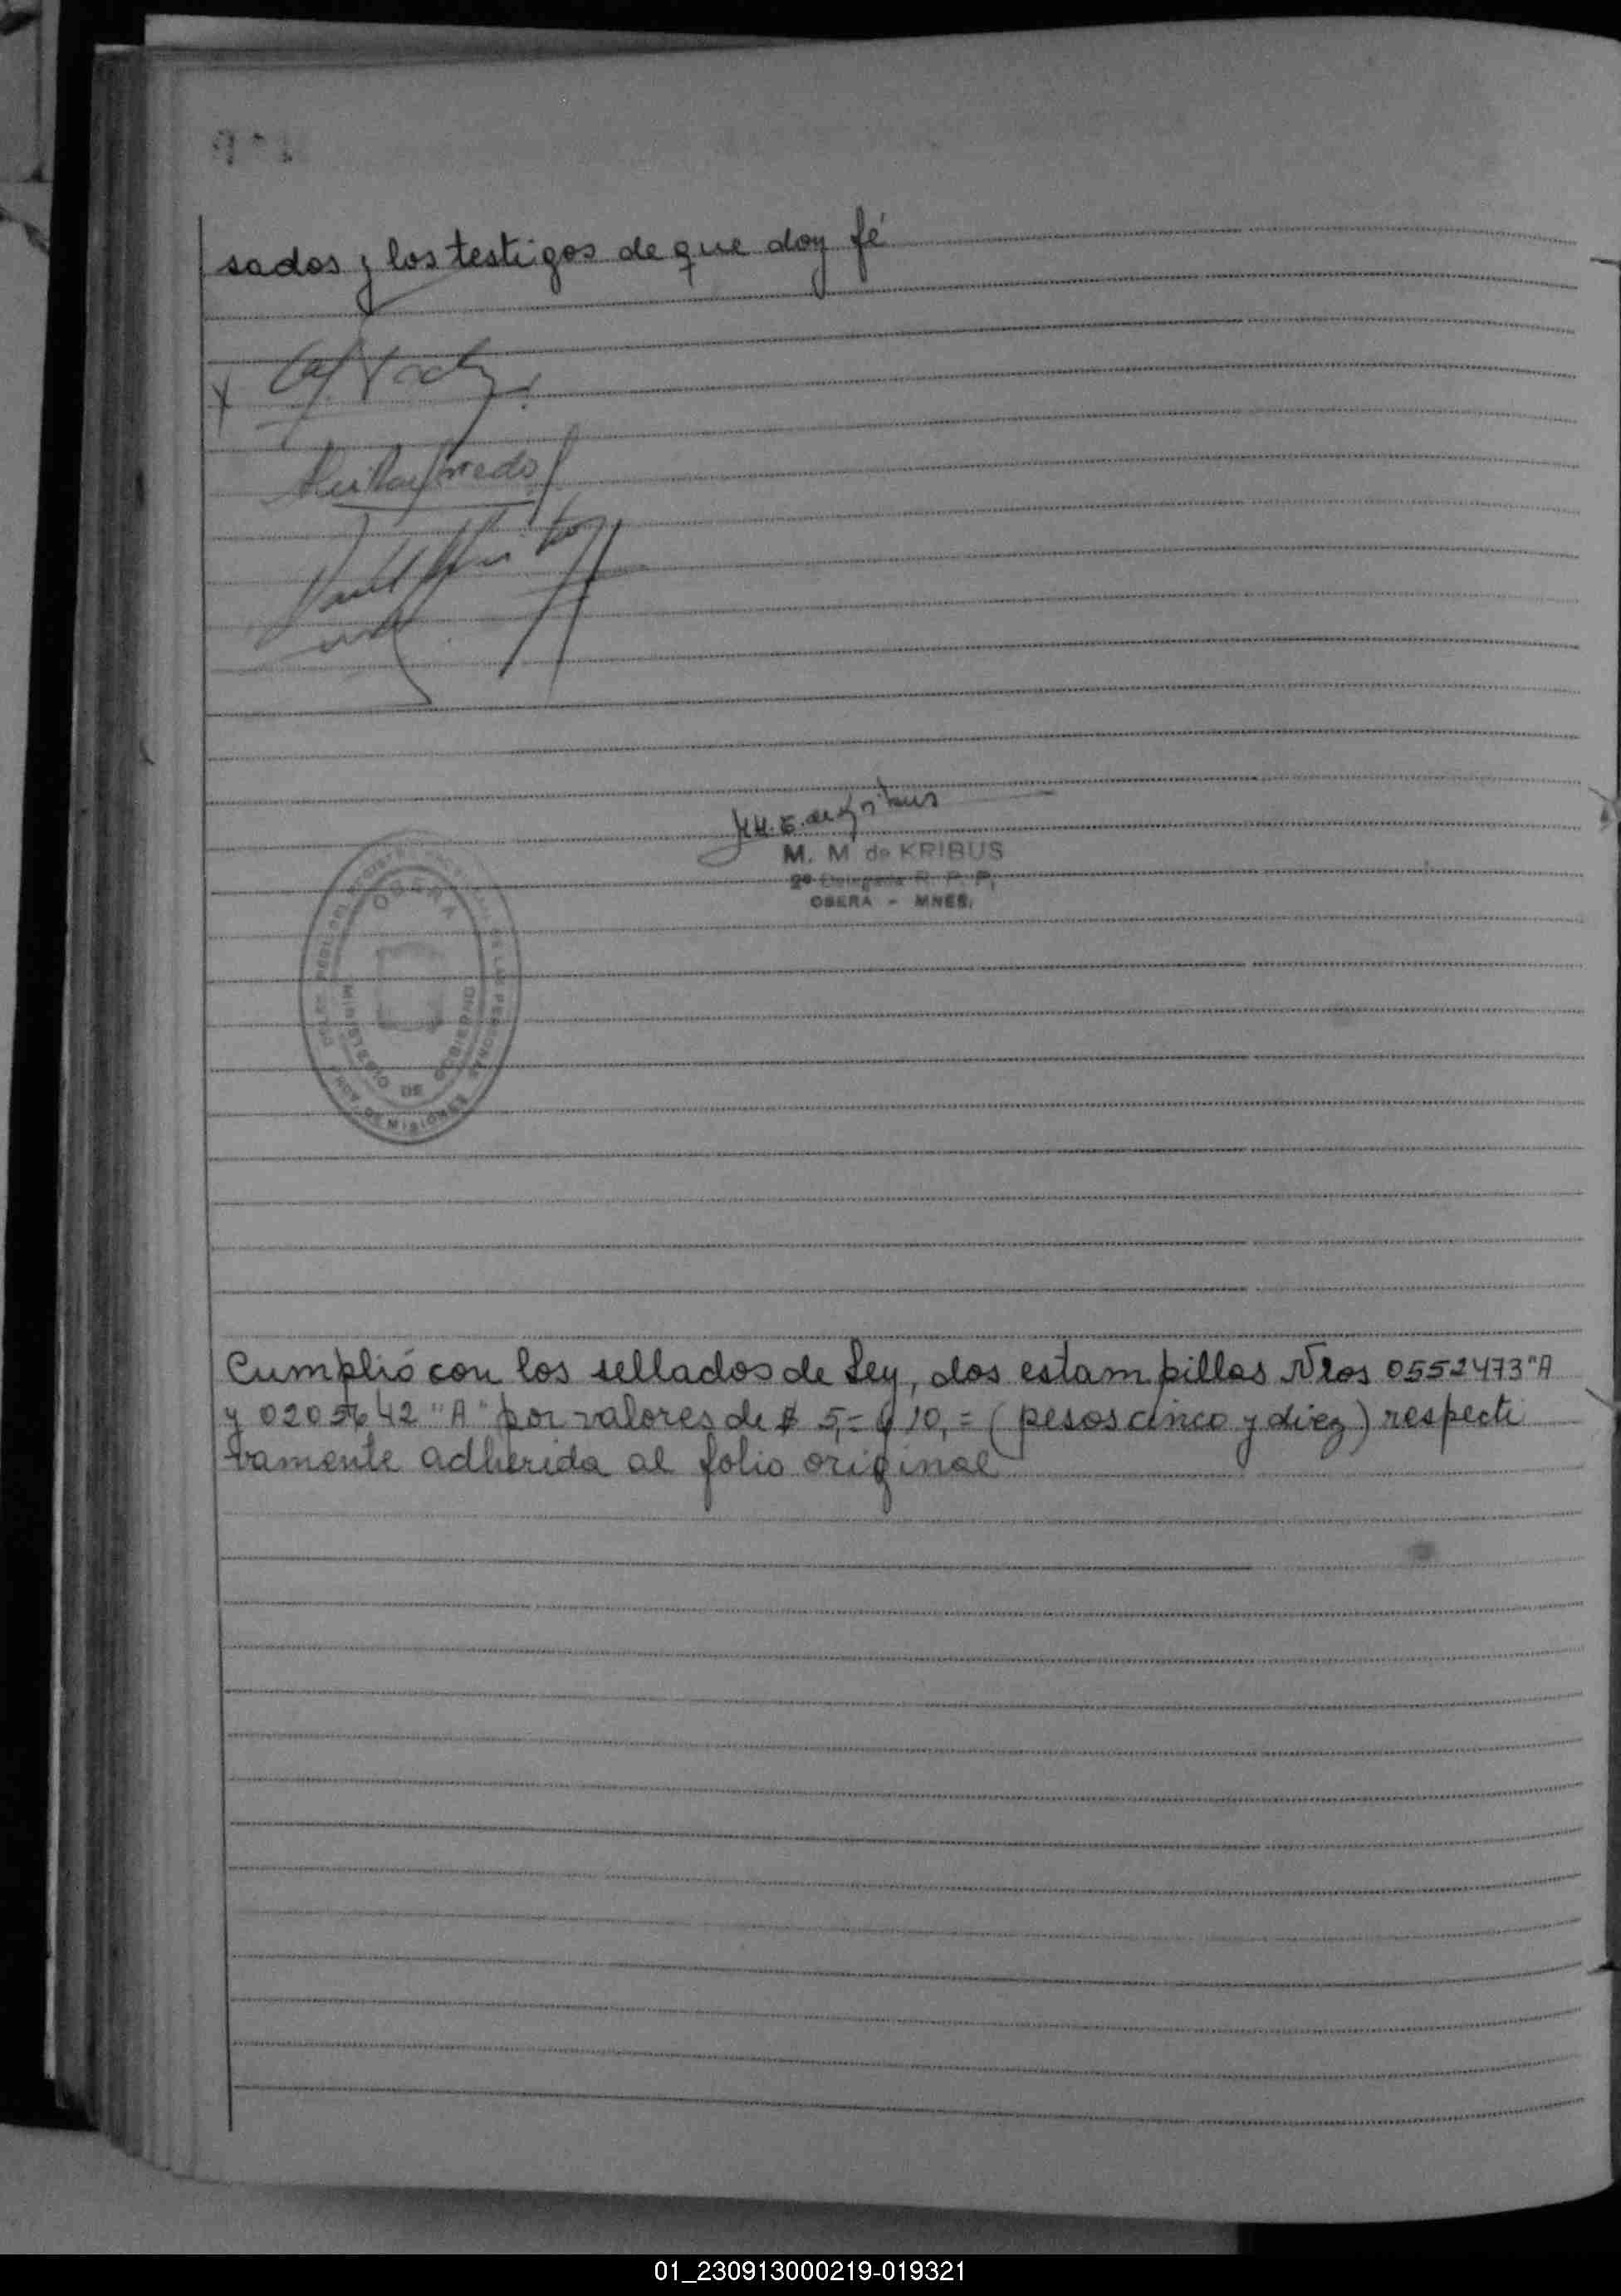 sados y los testigos de que doy fé
M. M de KRIBUS
2º Delegada R. P. P.
OBERA - MNES.
OBERA
MINISTERIO DE GOBIERNO
DE LAS PERSONAS
MISIONES
Cumplió con los sellados de Ley, dos estampillas Nros 0552473"A
y "A" por valores de $ 5,= y 10,= (pesos cinco y diez) respecti
vamente adherida al folio original
01_230913000219-019321